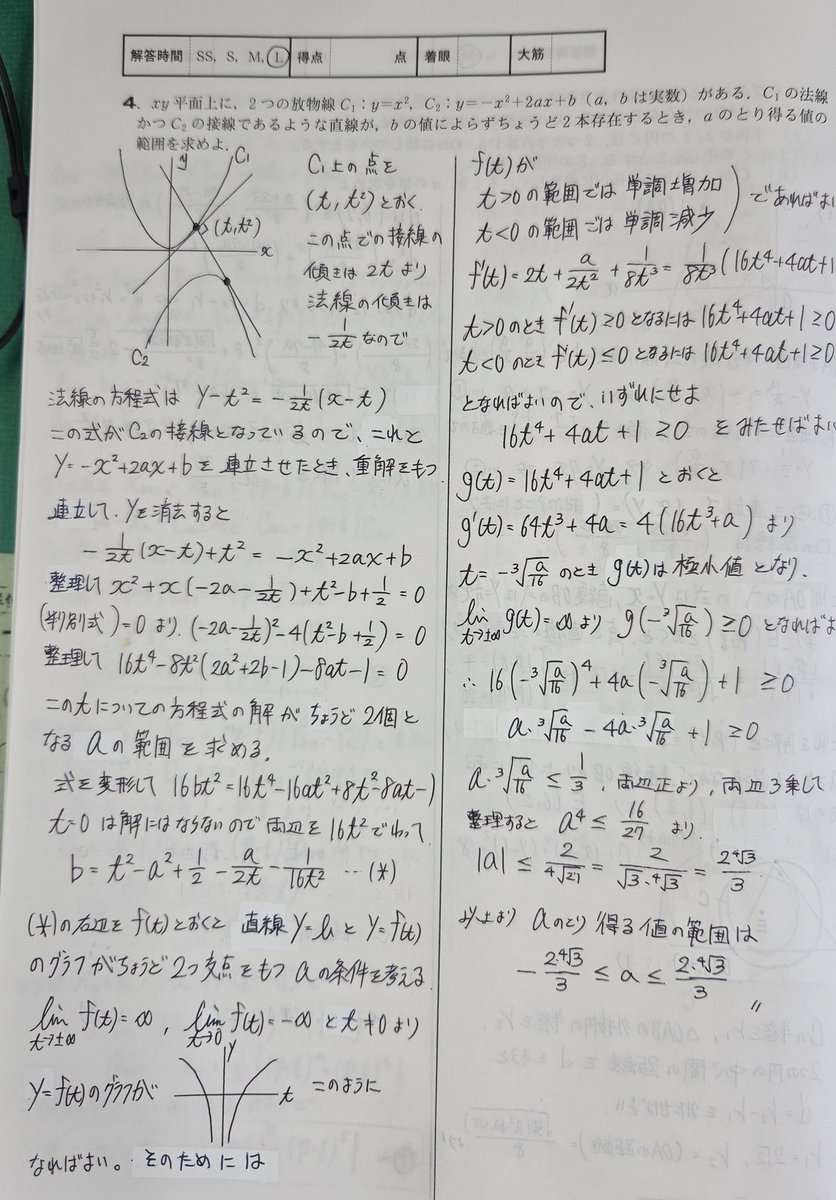 解答時間 SS, S, M, L 得点 点 着眼 大筋
4. xy平面上に，2つの放物線C₁：y=x²，C₂：y=−x²+2ax+b（a，bは実数）がある．C₁の法線
かつC₂の接線であるような直線が，bの値によらずちょうど2本存在するとき，aのとり得る値の
範囲を求めよ．
y
C₁
(t,t²)
x
C₂
C₁上の点を
(t, t²)とおく.
この点での接線の
傾きは2tより
法線の傾きは
-1/2t なので
法線の方程式は y-t²=-1/2t(x-t)
この式がC₂の接線となっているので、これと
y=-x²+2ax+bを連立させたとき,重解をもつ.
連立して、yを消去すると
-1/2t(x-t)+t²=-x²+2ax+b
整理して x²+x(-2a-1/2t)+t²-b+1/2=0
(判別式)=0より. (-2a-1/2t)²-4(t²-b+1/2)=0
整理して 16t⁴-8t²(2a²+2b-1)-8at-1=0
このtについての方程式の解がちょうど2個と
なるaの範囲を求める.
式を変形して 16bt²=16t⁴-16at²+8t²-8at-1
t=0は解にはならないので両辺を16t²でわって
b=t²-a²+1/2-a/2t-1/16t² …(*)
(*)の右辺をf(t)とおくと 直線y=bとy=f(t)
のグラフがちょうど2つ交点をもつaの条件を考える
lim t→±∞ f(t)=∞, lim t→0 f(t)=-∞ とt≠0より
y=f(t)のグラフが y t このように
なればよい。そのためには
f(t)が
t>0の範囲では単調増加
t<0の範囲では単調減少 であればよい
f'(t)=2t+a/2t²+1/8t³=1/8t³(16t⁴+4at+1
t>0のときf'(t)≥0となるには16t⁴+4at+1≥0
t<0のときf'(t)≤0となるには16t⁴+4at+1≥0
となればよいので、いずれにせよ
16t⁴+4at+1≥0 をみたせばよい
g(t)=16t⁴+4at+1とおくと
g'(t)=64t³+4a=4(16t³+a)より
t=-³√(a/16)のときg(t)は極小値となり.
lim t→±∞ g(t)=∞より g(-³√(a/16))≥0 となればよ
∴16(-³√(a/16))⁴+4a(-³√(a/16))+1≥0
a・³√(a/16)-4a・³√(a/16)+1≥0
a・³√(a/16)≤1/3, 両辺正より,両辺3乗して
整理すると a⁴≤16/27 より.
|a|≤2/⁴√27=2/(√3・⁴√3)=2⁴√3/3
以上より aのとり得る値の範囲は
-2・⁴√3/3≤a≤2・⁴√3/3 〃